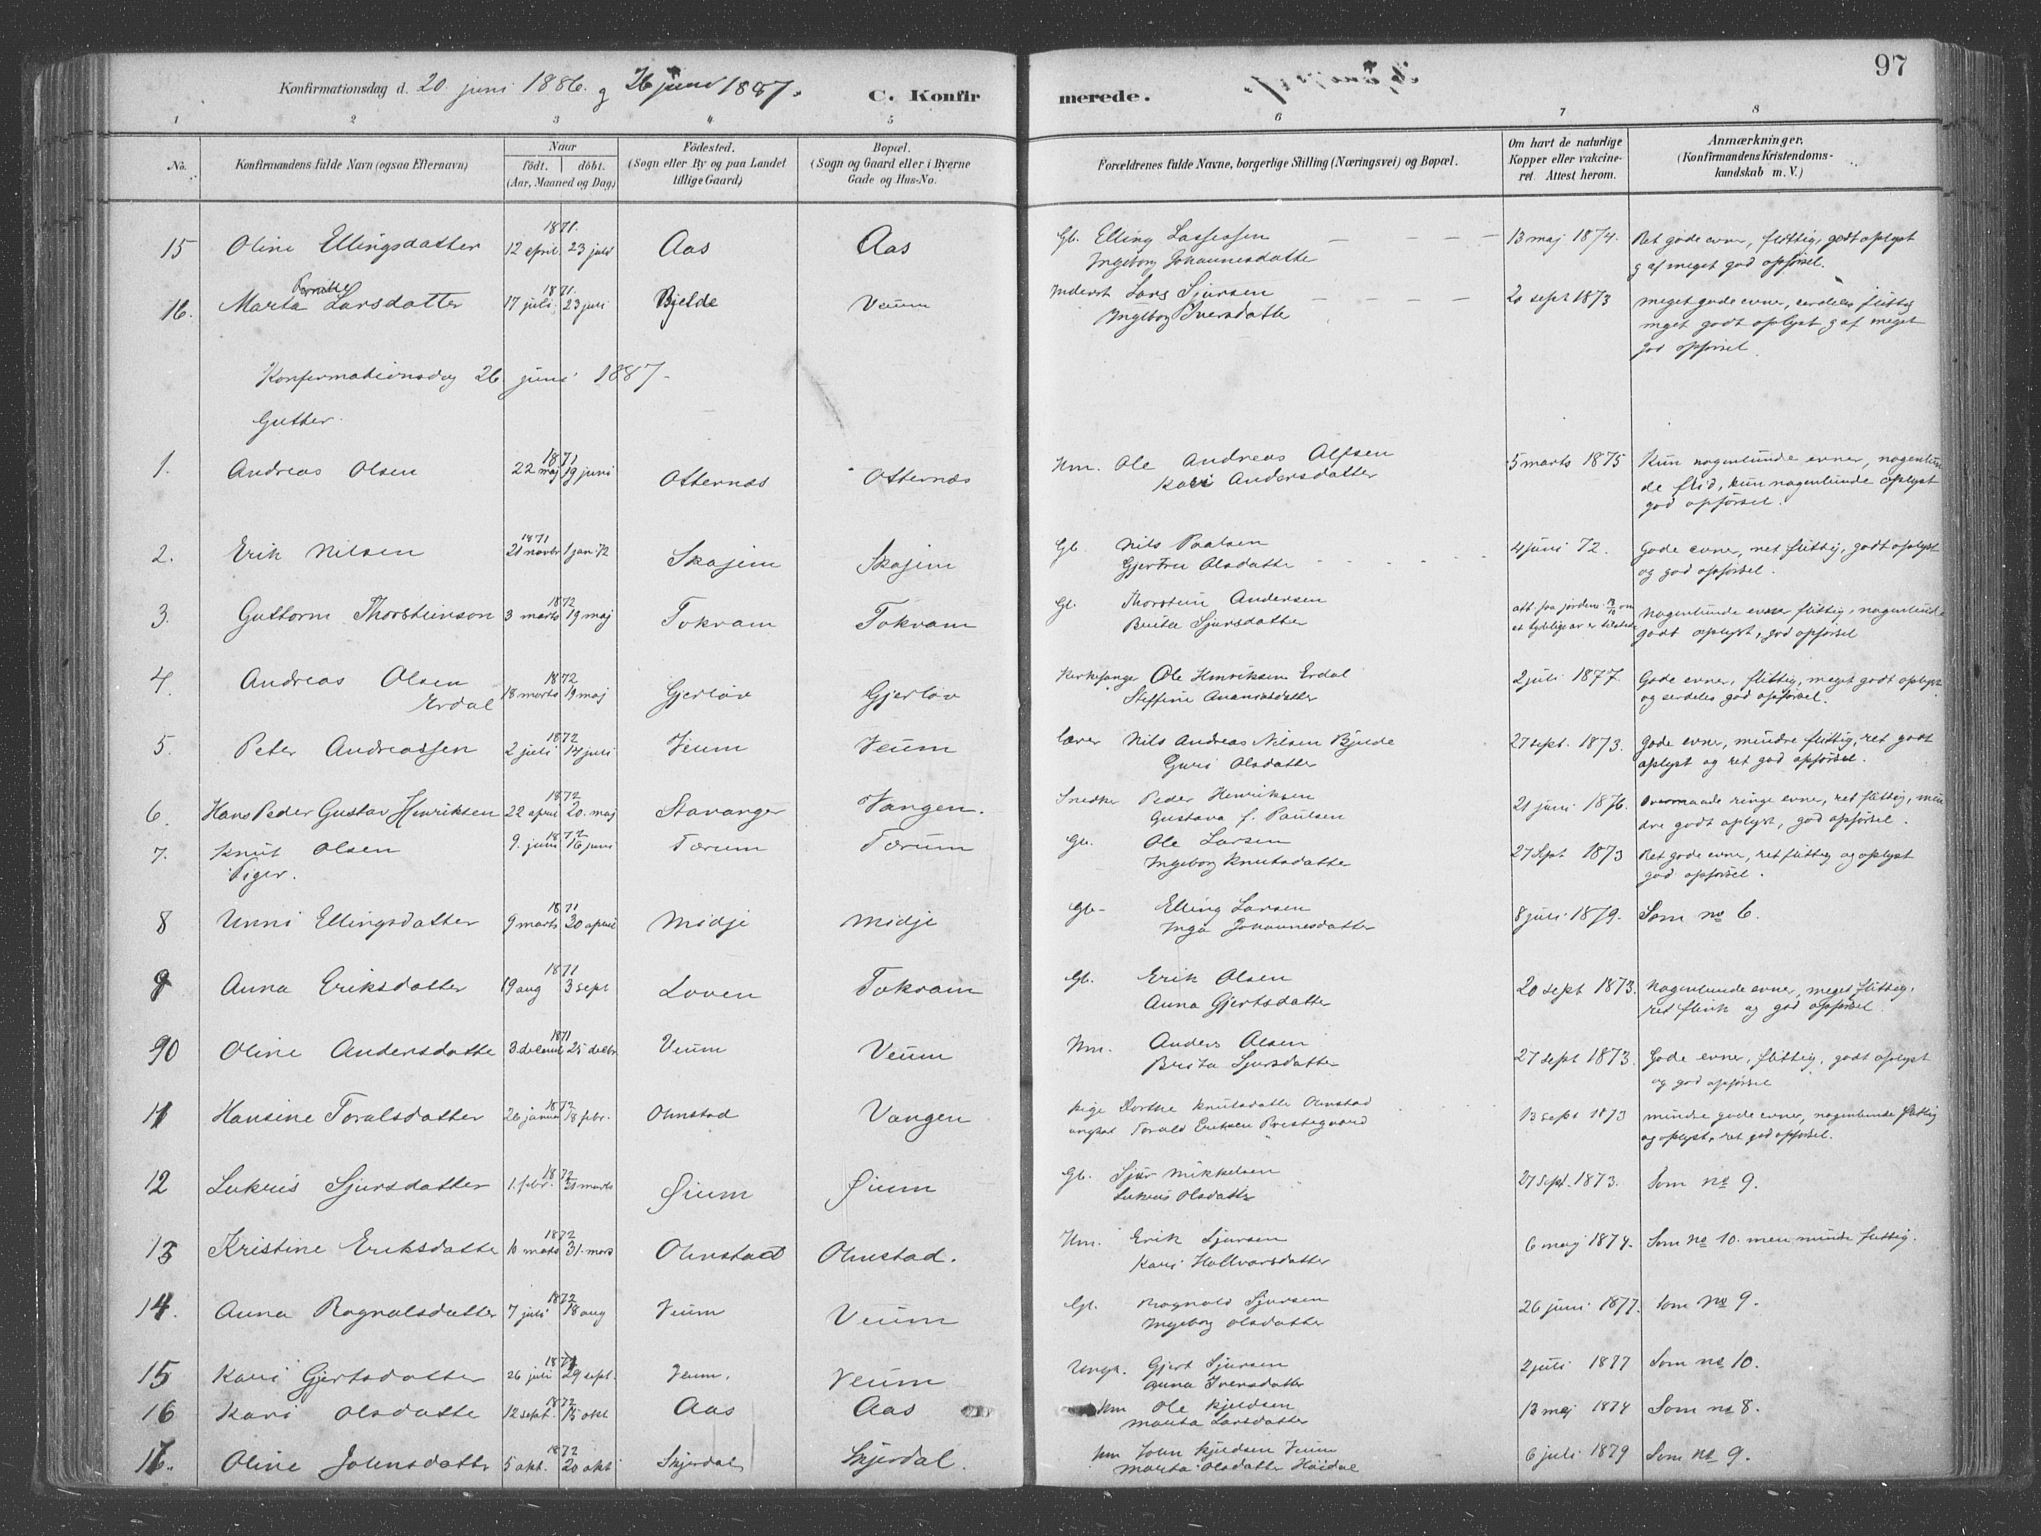 97
Konfirmationsdag d. 20 juni 1886. g 26 juni 1887.
C. Konfirmerede.
1 2 3 4 5 6 7 8
No. Konfirmandens fulde Navn (ogsaa Efternavn) Naar født. døbt. (Aar, Maaned og Dag) Fødested. (Sogn eller By og paa Landet tillige Gaard) Bopæl. (Sogn og Gaard eller i Byerne Gade og Hus-No. Forældrenes fulde Navne, borgerlige Stilling (Næringsvei) og Bopæl. Om havt de naturlige Kopper eller vakcineret. Attest herom. Anmærkninger. (Konfirmandens Kristendomskundskab m. V.)
15 Oline Ellingsdatter 1871. 12 april 23 juli Aas Aas Gb. Elling Lassesen 13 maj 1874. Ret gode evner, flittig, godt oplyst
Ingeborg Johannesdatter g af meget god opførsel.
16. Marta Pernille Larsdatter 1871. 17 juli 23 juli Bjelde Veum Inderst Lars Sjursen 20 sept 1873 meget gode evner, særdeles flittig
Ingeborg Iversdatter meget godt oplyst g af meget
god opførsel.
Konfirmationsdag 26 juni 1887.
Gutter.
1. Andreas Olsen 1871 22 maj 19 juni Otternæs Otternæs Hm. Ole Andreas Olsen 5 marts 1875 Kun nogenlunde evner, nogenlun
Kari Andersdatter de flid, kun nogenlunde oplyst
god opførsel.
2. Erik Nilsen 1871 21 novbr 1 jan 72 Skajem Skajem Gb. Nils Paalsen 4 juni 72. Gode evner, ret flittig, godt oplyst
Gjertru Olsdatter og god opførsel.
3. Guttorm Thorsteinson 1872 3 marts 19 maj Tokvam Tokvam Gb. Thorstein Andersen att. fra jordm. om Nogenlunde evner flittig, nogenlunde
Brita Sjursdatter et tydelige ar er tilstede godt oplyst, god opførsel
4. Andreas Olsen 1872 18 marts 19 maj Gjerløv Gjerløv Kirkesanger Ole Henriksen Erdal 2 juli 1877. Gode evner, flittig, meget godt oplyst
Erdal Steffine Ananiasdatter og serdeles god opførsel.
5. Peter Andreassen 1872 2 juli 14 juli Veum Veum Lærer Nils Andreas Nilsen Bjelde 27 sept. 1873. Gode evner, mindre flittig, ret godt
Guri Olsdatter oplyst og ret god opførsel.
6. Hans Peder Gustav Henriksen 1872 22 april 20. maj Stavanger Vangen. Snedker Peder Henriksen 21 juni 1876. Overmaade ringe evner, ret flittig, min
Gustava f. Paulsen dre godt oplyst, god opførsel.
7. Knut Olsen 1872 9. juni 16 juni Tærum Tærum Gb. Ole Larsen 27 sept 1873 Ret gode evner, ret flittig og oplyst
Ingeborg Knutsdatter god opførsel.
Piger.
8 Unni Ellingsdatter 1871 9 marts 20 april Midje Midje Gb. Elling Larsen 8 juli 1879. Som no 6.
Inga Johannesdatter
9 Anna Eriksdatter 1871 19 aug 3 sept Loven Tokvam Gb. Erik Olsen 20 sept 1873. Nogenlunde evner, meget flittig,
Anna Gjertsdatter ret flink og god opførsel.
10 Oline Andersdatte 1871 3 decemb 25 decbr. Veum Veum Hm. Anders Olsen 27 sept 1873. Gode evner, flittig, godt oplyst
Brita Sjursdatter og god opførsel
11 Hansine Toralsdatter 1872 26 januar 18 febr. Ohnstad Vangen Pige Dorthe Knutsdatter Ohnstad 13 sept 1873 mindre gode evner, nogenlunde flittig
ungkal Torald Eriksen Prestegaard og oplyst, ret god opførsel.
12 Lukris Sjursdatter 1872 1. febr. 31 marts Øium Øium Gb. Sjur Mikkelsen 27 sept. 1873. Som no 9.
Lukris Olsdatter
13 Kristine Eriksdatte 1872 10 marts 31. mars Ohnstad Ohnstad. Hm. Erik Sjursen 6 maj 1874. Som no 10. men mindre flittig.
Kari Hallvarsdatter
14. Anna Ragnalsdatter 1872 7 juli 18 aug Veum Veum Gb. Ragnald Sjursen 26 juni 1877. Som no 9.
Ingeborg Olsdatter
15 Kari Gjertsdatter 26 juli 29 sept. Veum. Veum Ungk. Gjert Sjursen 2 juli 1877 Som no 10.
Anna Iversdatter
16 Kari Olsdatte 1872 12 sept. 15 okt Aas Aas Hm Ole Kjeldsen 13 maj 1874 Som no 8.
Marita Larsdatter
17. Oline Johnsdatte 1872 5 okt. 20 okt Skjerdal Skjerdal. Hm John Kjeldsen Veum 6 juli 1879 Som no 9.
Marita Olsdatter Høidal